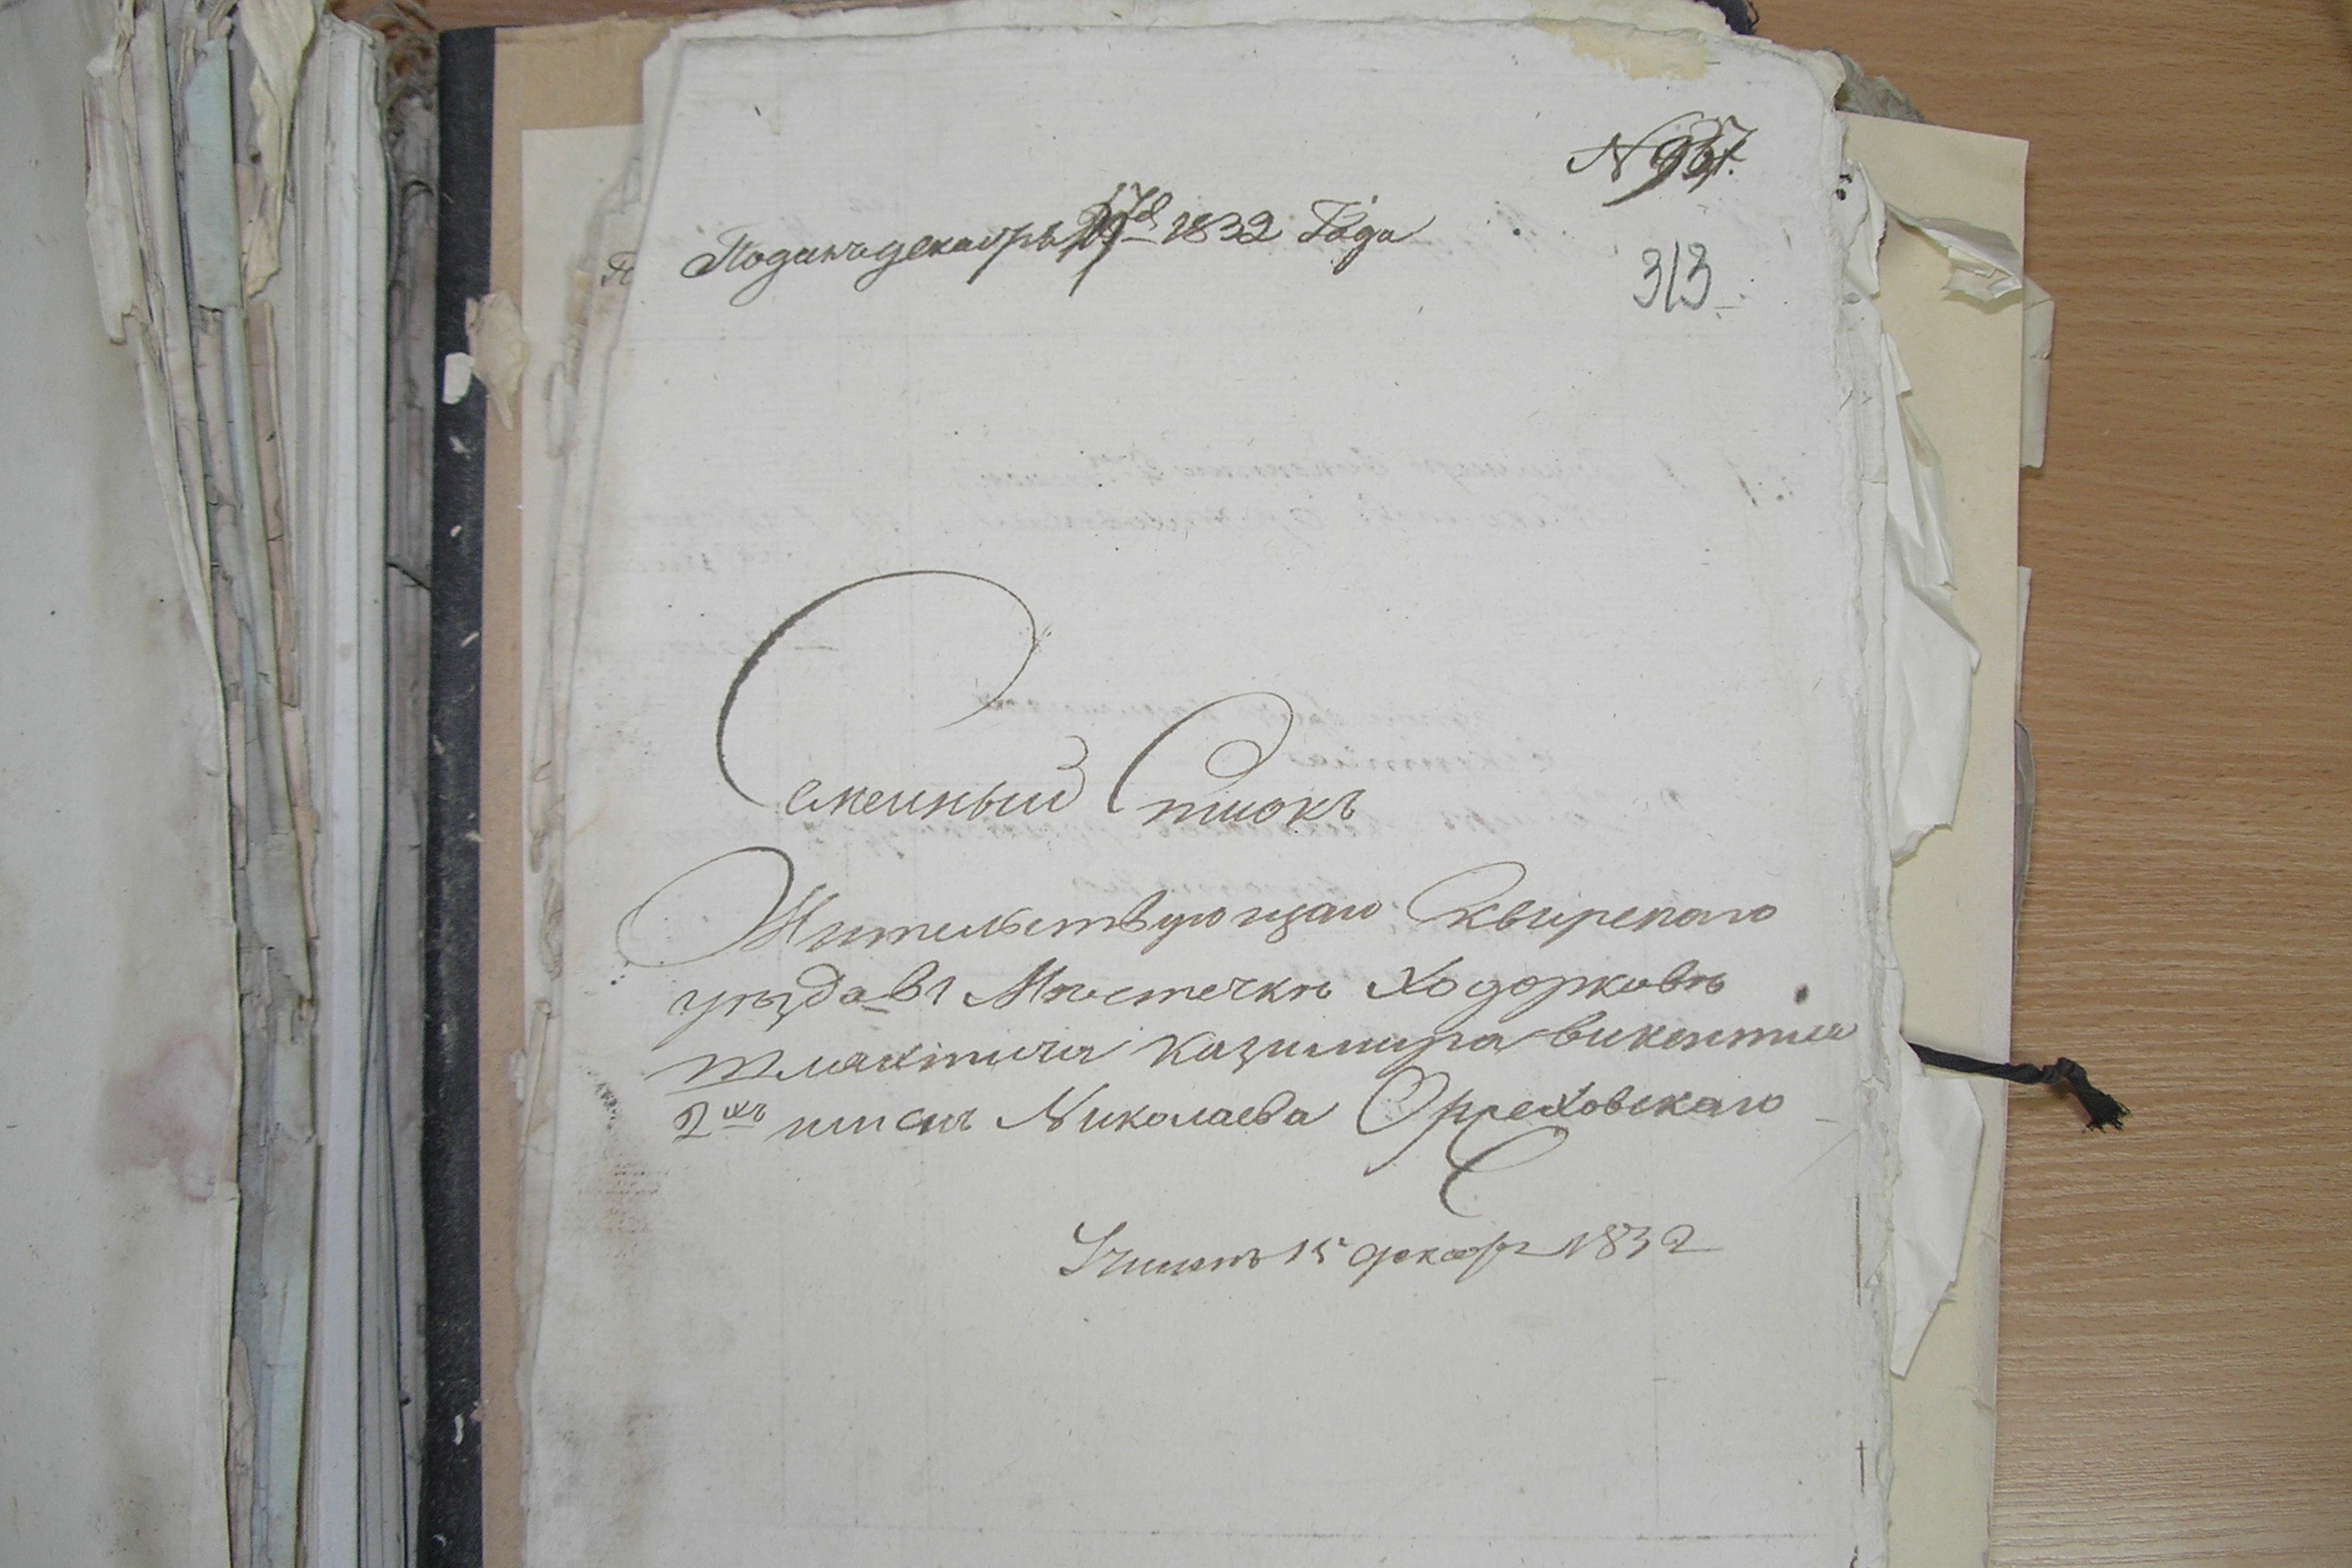 N 937.
Подан декабря 17го 1832 Года
313
Семейный Списокъ
Жительствующаго Сквирскаго
уѣзда въ Мѣстечкѣ Ходорковѣ
шляхтича Казимира викентия
2хъ имянъ Николаева Орреховскаго
15 декабр 1832